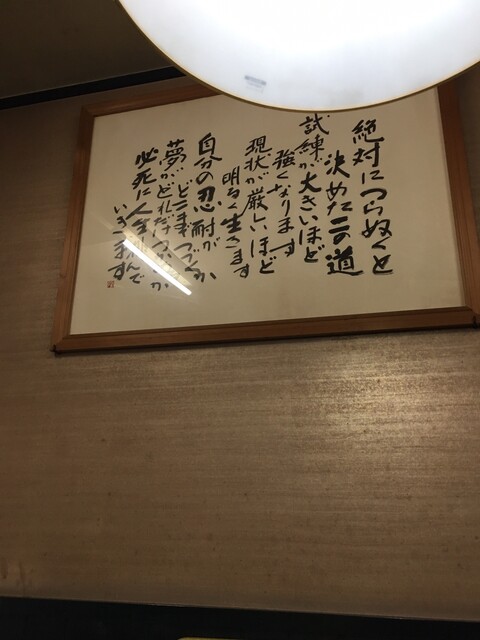 絶対につらぬくと
決めたこの道
試練が大きいほど
強くなります
現状が厳しいほど
明るく生きます
自分の忍耐が
どこまでつづくか
夢がどれだけつかめるか
必死に人生を
いきます